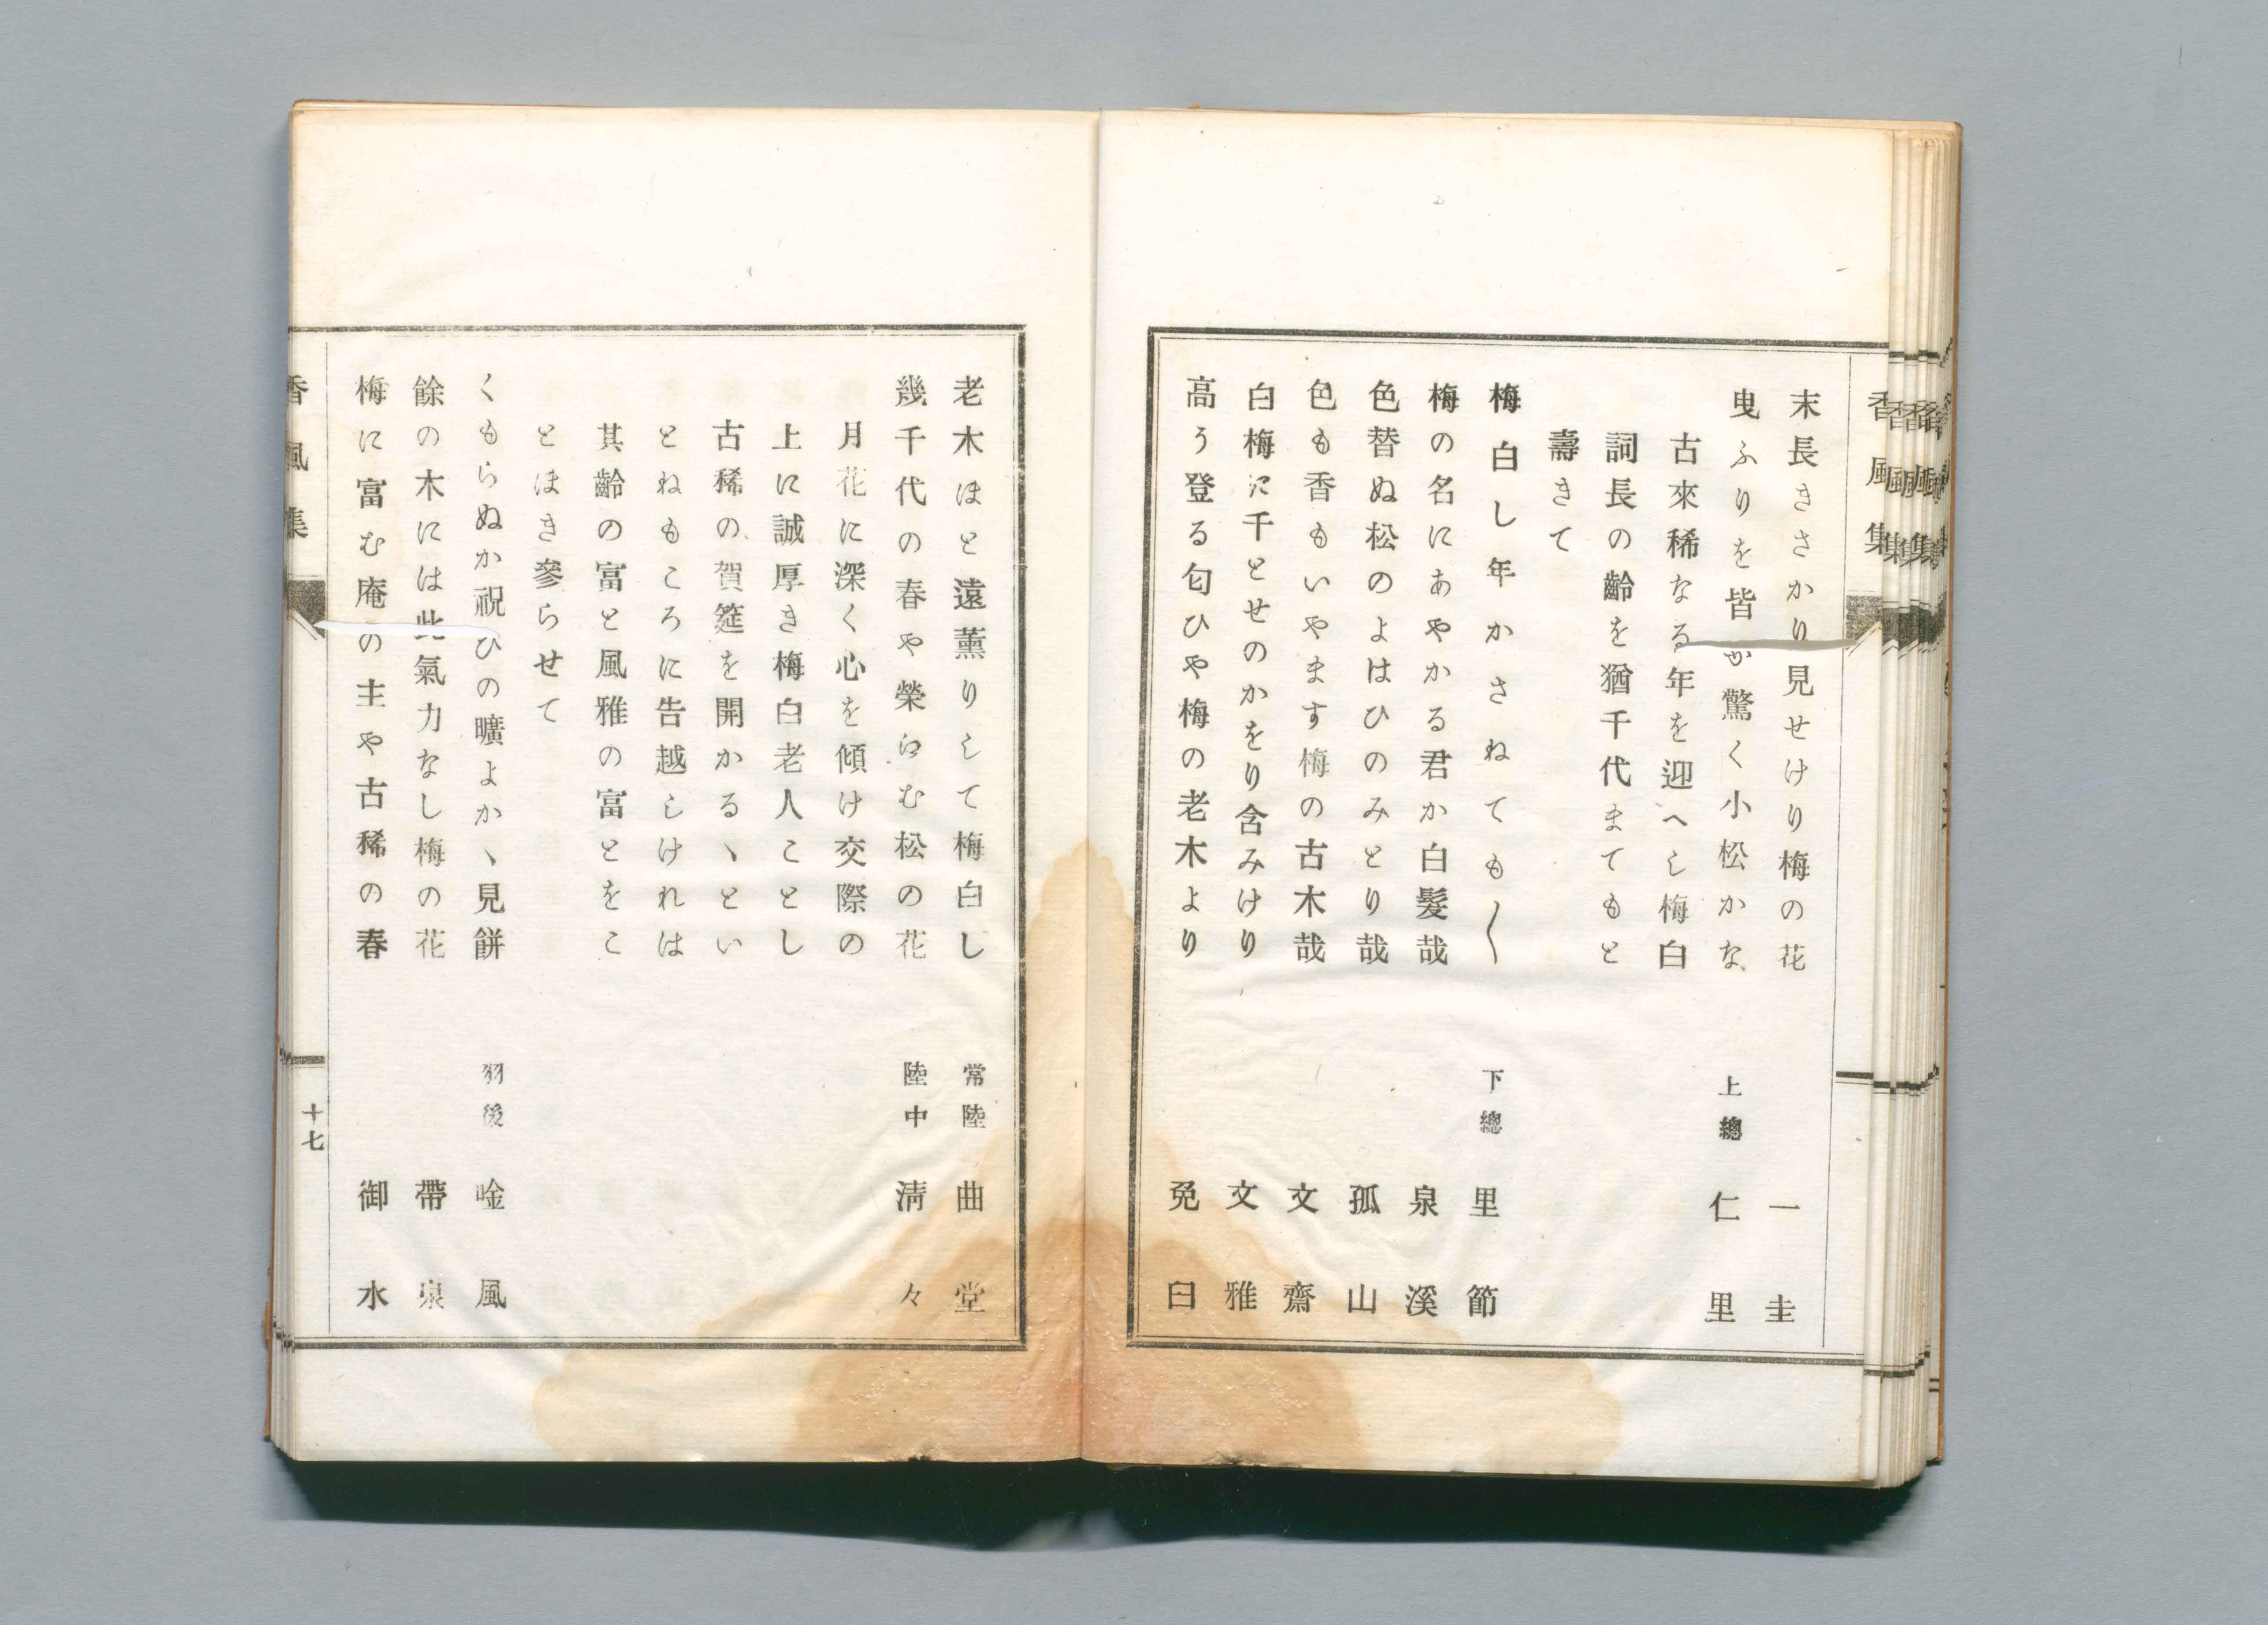 末長きさかり見せけり梅の花　一圭
曳ふりを皆か驚く小松かな　上總　仁里
古來稀なる年を迎へし梅白
詞長の齡を猶千代まてもと
壽きて
梅白し年かさねても〳〵　下總　里節
梅の名にあやかる君か白髮哉　泉溪
色替ぬ松のよはひのみとり哉　孤山
色も香もいやます梅の古木哉　文齋
白梅に千とせのかをり含みけり　文雅
高う登る匂ひや梅の老木より　兎臼
老木ほと遠薰りして梅白し　常陸　曲堂
幾千代の春や榮らむ松の花　陸中　淸々
月花に深く心を傾け交際の
上に誠厚き梅白老人ことし
古稀の賀筵を開かるゝとい
とねもころに告越しけれは
其齡の富と風雅の富とをこ
とほき參らせて
くもらぬか祝ひの曠よかゝ見餅　羽後　唫風
餘の木には此氣力なし梅の花　帶泉
梅に富む庵の主や古稀の春　御水
香風集
十七